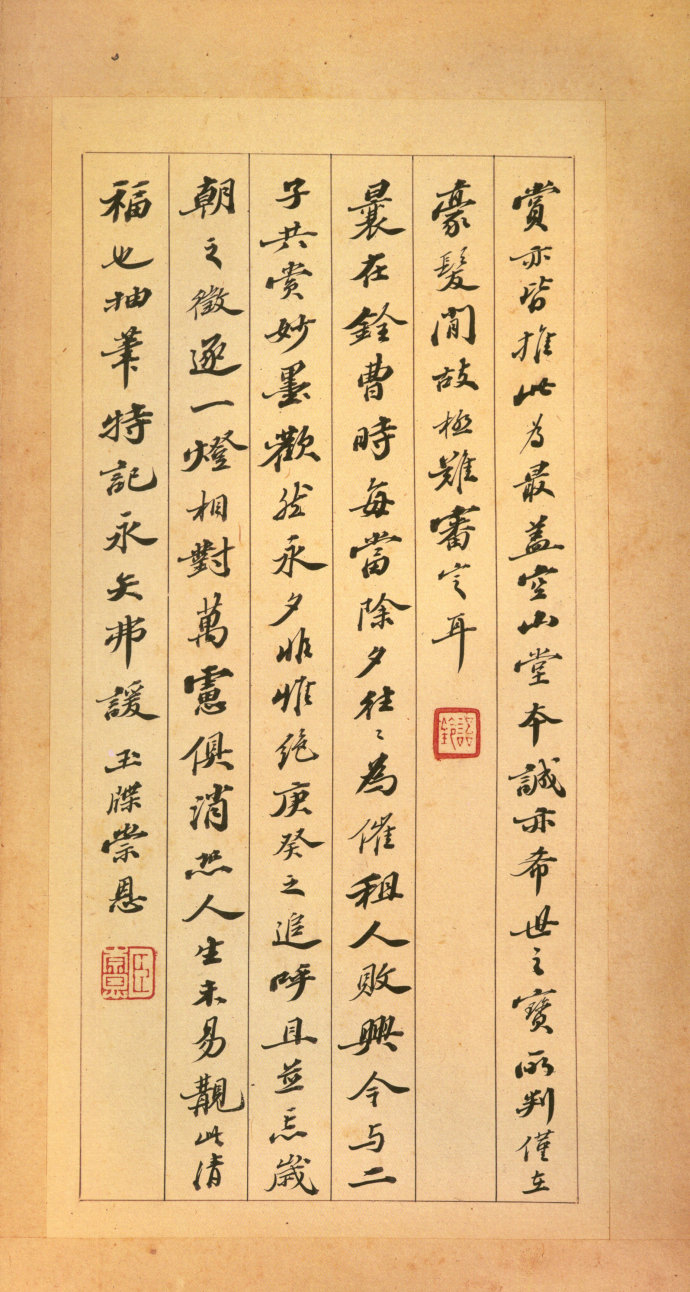 賞亦皆推此為最蓋空山堂本誠亦希世之寶所判僅在
豪髮間故極難審定耳
曩在銓曹時每當除夕往〻為催租人敗興今与二
子共賞妙墨歡然永夕非惟絶庚癸之追呼且並忘歲
朝之徵逐一燈相對萬慮俱消然人生未易覯此清
福也抽筆特記永矢弗諼 玉牒崇恩